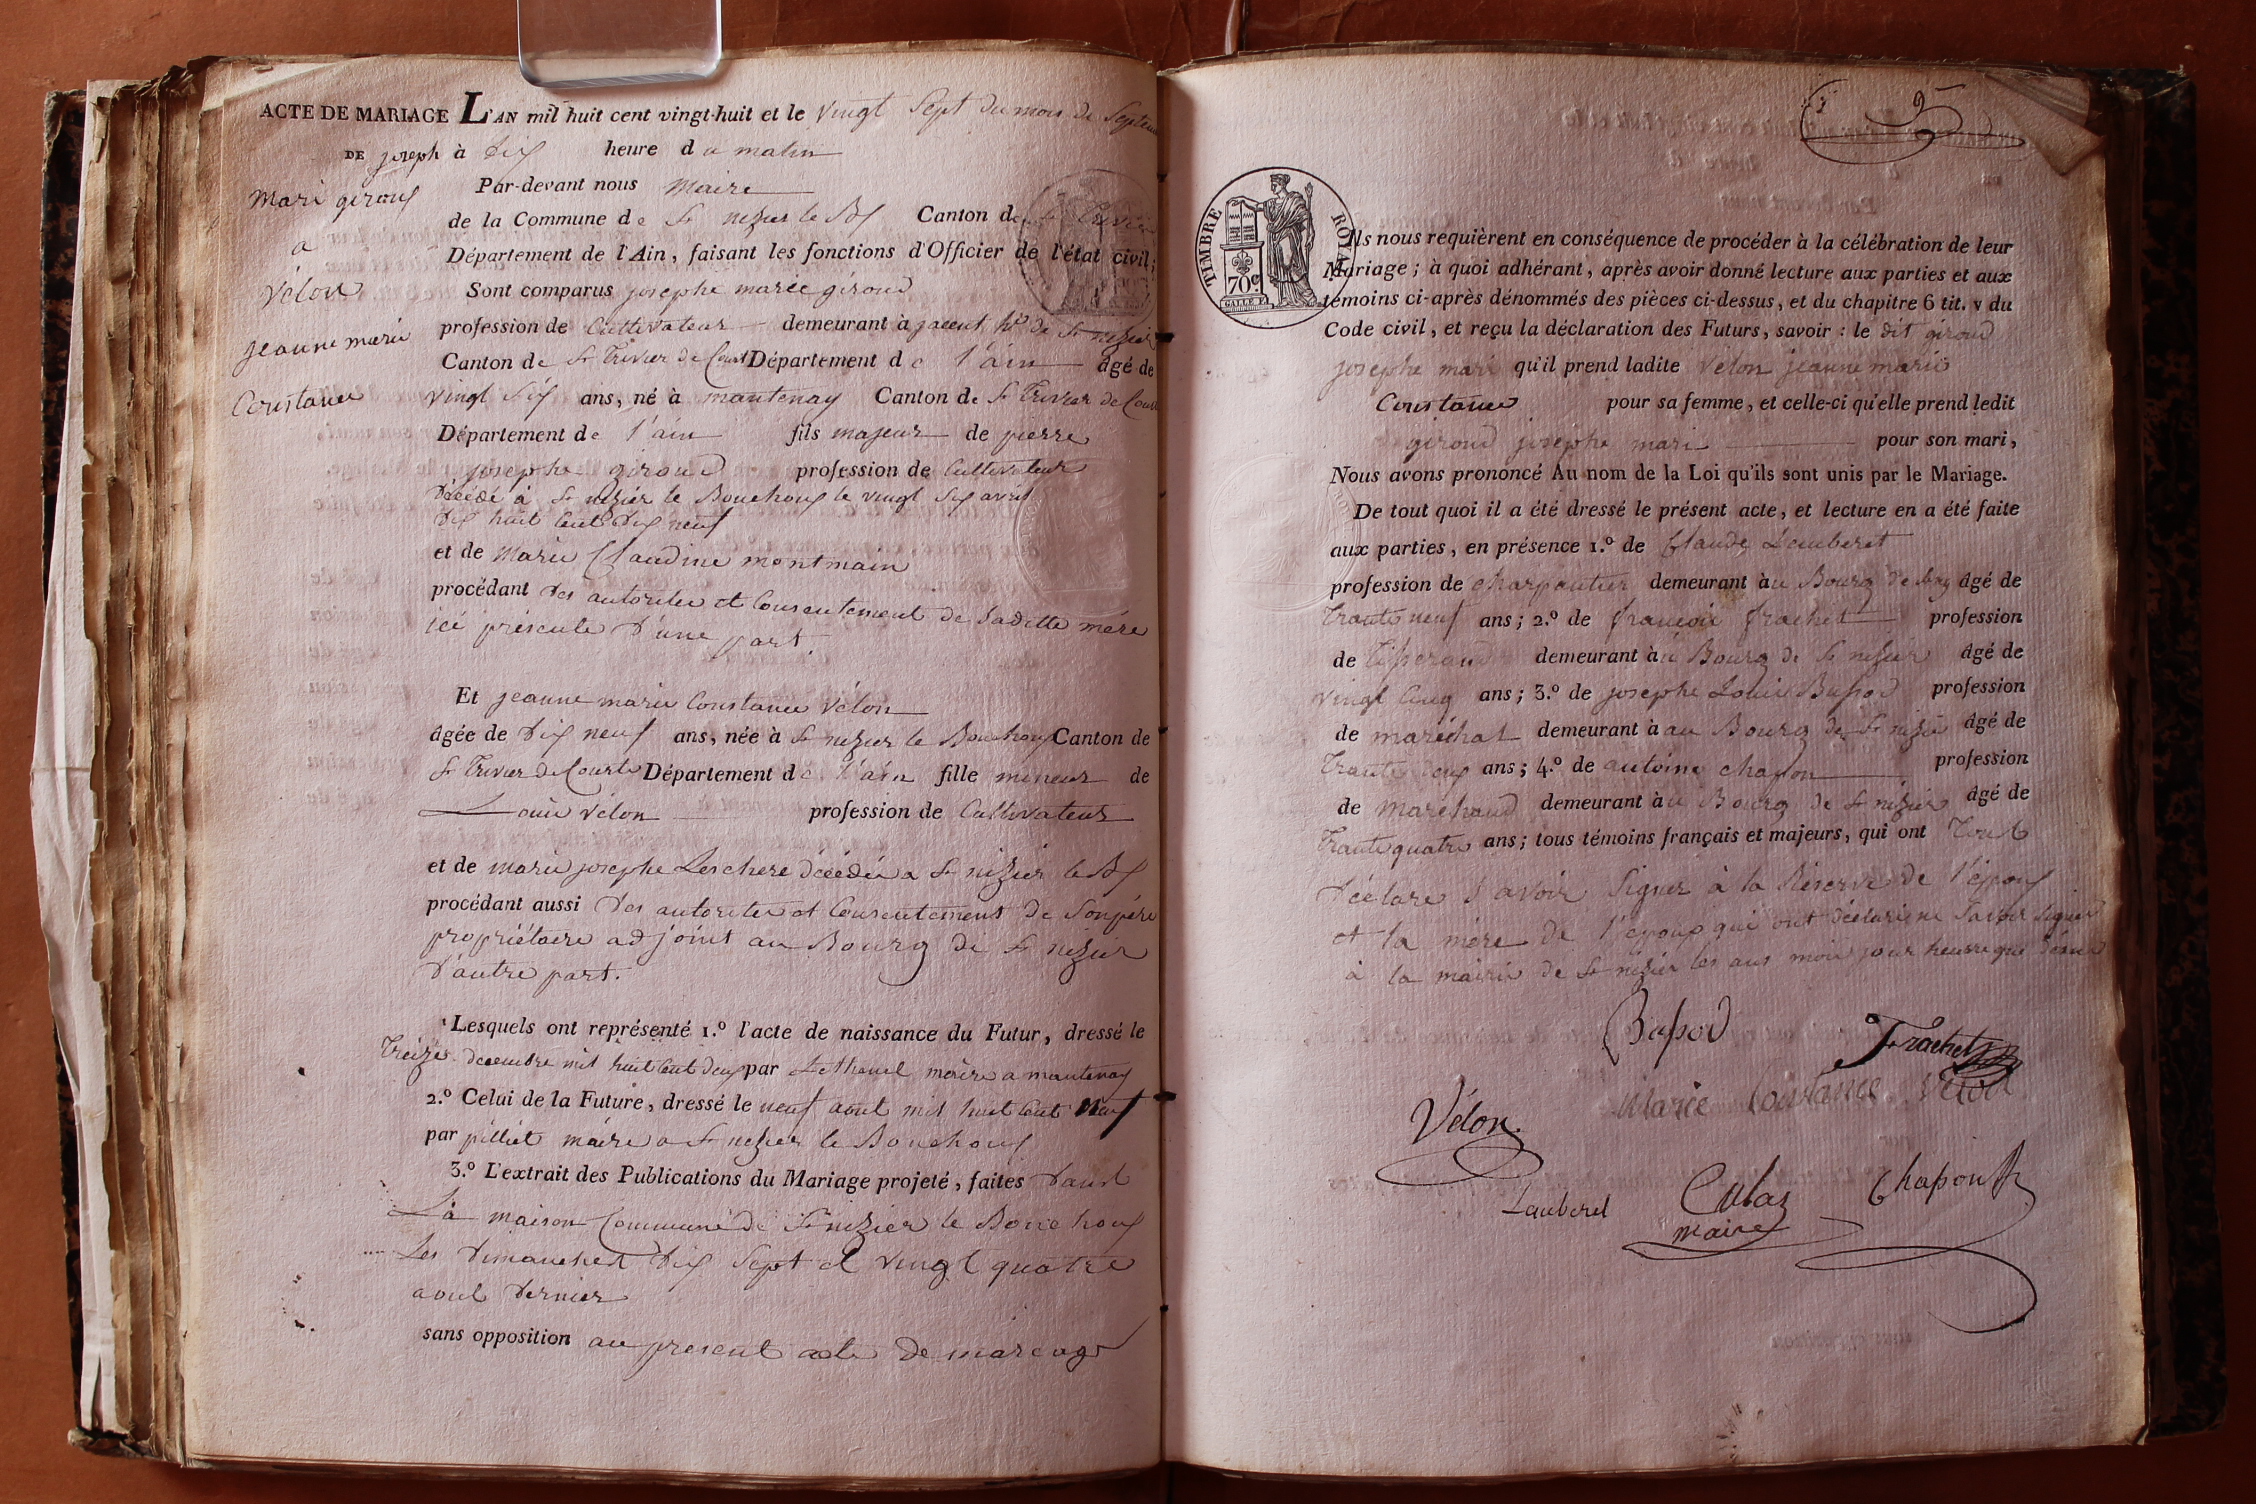 ACTE DE MARIAGE L'AN mil huit cent vingt-huit et le vingt Sept du mois de Septem
DE joseph à dix heure du matin
Mari giroux
a
vélon
jeanne marie
Constance
Par-devant nous Maire
de la Commune de St nizier le Bx Canton de St Trivier
Département de l'Ain, faisant les fonctions d'Officier de l'état civil;
Sont comparus josephe marie giroud
profession de Cultivateur demeurant à jacent h.^u de St nizier
Canton de St Trivier de Court Département de l'ain âgé de
vingt Six ans, né à mantenay Canton de St Trivier de Court
Département de l'ain fils majeur de pierre
josephe giroud profession de Cultivateur
Décédé à St nizier le Bouchoux le vingt Six avril
dix huit Cent dix neuf
et de Marie Claudine montmain
procédant des autorités et Consentement de Sadette mère
icé présente d'une part.
Et jeanne marie Constance vélon
âgée de Dix neuf ans, née à St nizier le Bouchoux Canton de
St Trivier de Courte Département de l'ain fille mineur de
Louis vélon profession de Cultivateur
et de marie josephe Leschere décédée a St nizier le Bx
procédant aussi des autorités et Consentement de Sonpére
propriétaire adjoint au Bourg de St nizier
d'autre part.
Lesquels ont représenté 1.º l'acte de naissance du Futur, dressé le
Treize decembre mil huit Cent deux par mâire a mantenay
2.º Celui de la Future, dressé le neuf aout mil huit Cent Neuf
par pilliet mâire a St nizier le Bouchoux
3.º L'extrait des Publications du Mariage projeté, faites dans
La maison Commune de St nizier le Bouchoux
Les Dimanches Dix Sept et vingt quatre
aout dernier
sans opposition au présent acte de mariage
9
TIMBRE ROYAL
70c
Ils nous requièrent en conséquence de procéder à la célébration de leur
Mariage; à quoi adhérant, après avoir donné lecture aux parties et aux
témoins ci-après dénommés des pièces ci-dessus, et du chapitre 6 tit. v du
Code civil, et reçu la déclaration des Futurs, savoir: le dit giroud
josephe mari qu'il prend ladite vélon jeanne marie
Constance pour sa femme, et celle-ci qu'elle prend ledit
giroud josephe mari pour son mari,
Nous avons prononcé Au nom de la Loi qu'ils sont unis par le Mariage.
De tout quoi il a été dressé le présent acte, et lecture en a été faite
aux parties, en présence 1.º de Claude Lauberet
profession de charpantier demeurant àu Bourg de âgé de
Trante neuf ans; 2.º de françois frachet profession
de tisserand demeurant àu Bourg de St nizier âgé de
vingt Cinq ans; 3.º de josephe Louis Bassod profession
de maréchal demeurant à au Bourg de St nizier âgé de
Trante deux ans; 4.º de antoine chapon profession
de marchand demeurant àu Bourg de St nizier âgé de
Trante quatre ans; tous témoins français et majeurs, qui ont Tous
Déclare Savoir Signer à la Réserve de l'époux
et la mère de l'époux qui ont déclaré ne Savoir Signer
à la mairie de St nizier les ans mois jour heurre que dessus
Bassod
Frachet
Marie Constance vélon
Vélon
Lauberel
Cubaz
maire
Chapon